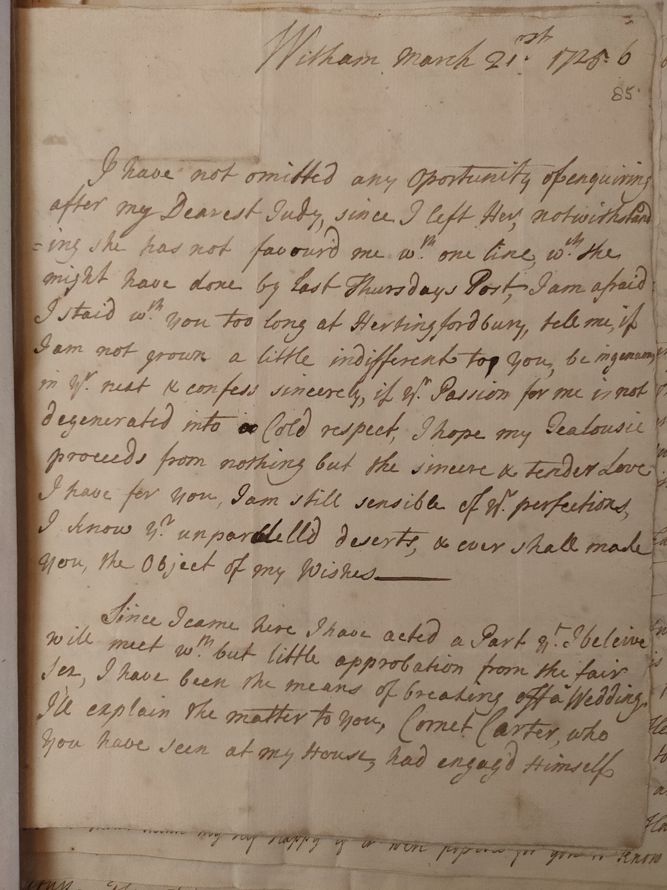 Witham March 21.rst 1725.6
85
I have not omitted any Oportunity of enquiring
after my Dearest Judy, since I left Her, notwithstand
=ing she has not favour'd me w.th one line, w.ch she
might have done by Last Thursdays Post, I am afraid
I staid w.th you too long at Hertingfordbury, tell me, if
I am not grown a little indifferent to you, be ingenuous
in y.r next & confess sincerely, if y.r Passion for me is not
degenerated into a Cold respect, I hope my Jealousie
proceeds from nothing but the sincere & tender Love
I have for you, I am still sensible of y.r perfections,
I know y.r unparallell'd deserts, & ever shall make
you, the Object of my Wishes
Since I came here I have acted a Part y.t I beleive
will meet w.th but little approbation from the fair
Sex, I have been the means of breaking off a Wedding
I'll explain the matter to you, Cornet Carter, who
you have seen at my House, had engag'd Himself
know